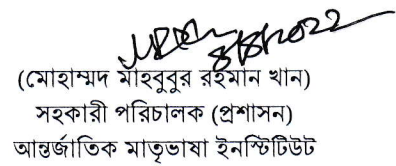 8/8/2022
(মোহাম্মদ মাহবুবুর রহমান খান)
সহকারী পরিচালক (প্রশাসন)
আন্তর্জাতিক মাতৃভাষা ইনস্টিটিউট